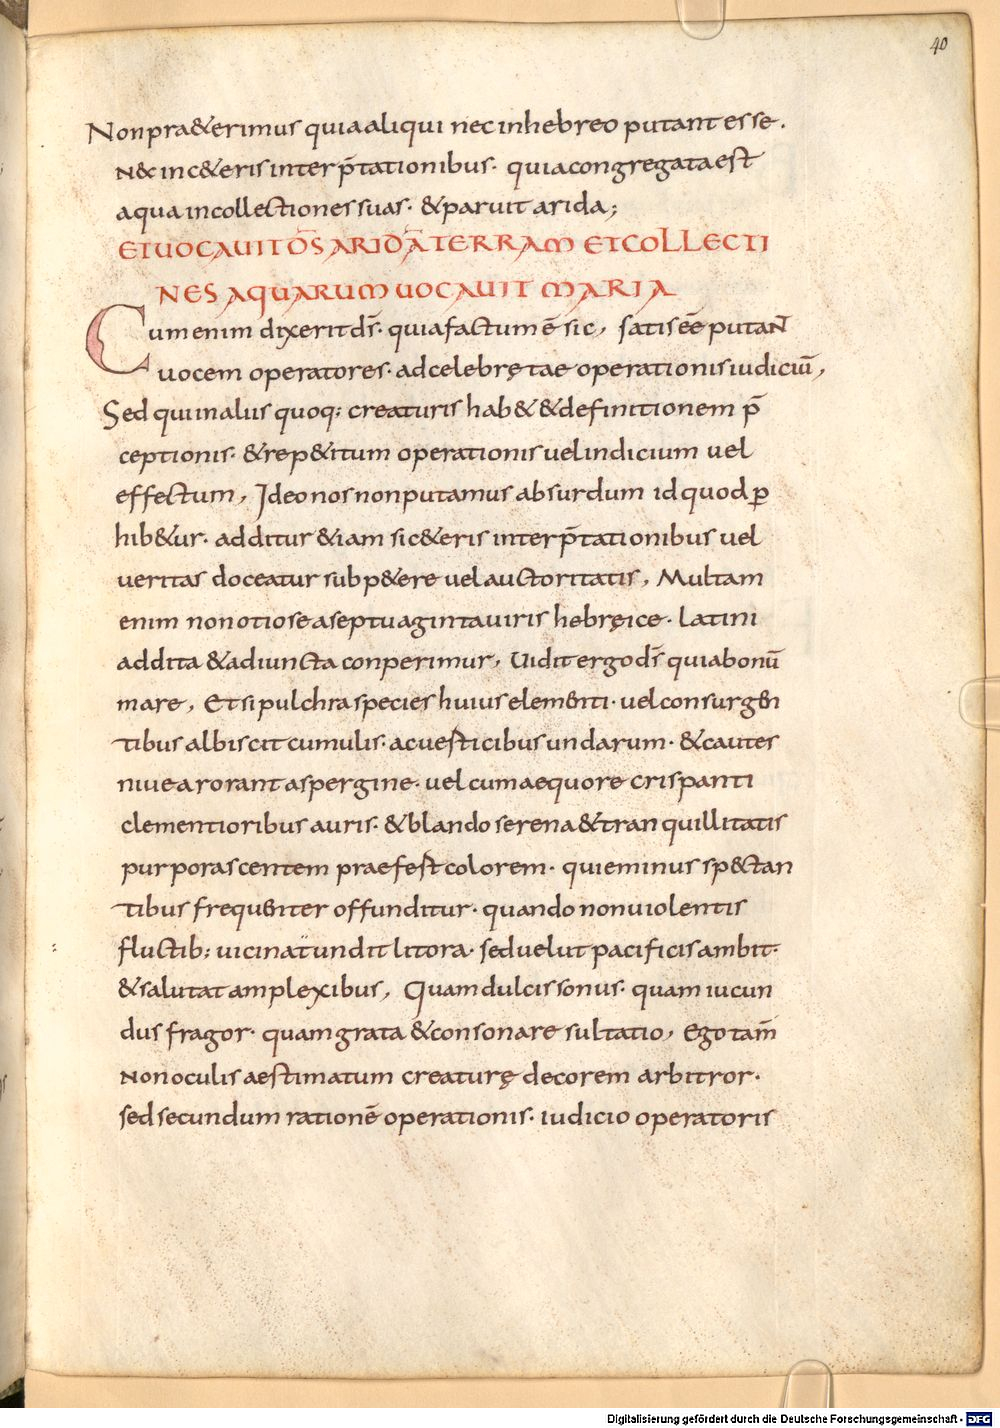 40
Non pra&erimus quia aliqui nec in hebreo putant esse.
N&c in c&eris interp̄tationibus· quia congregata est
aqua in collectiones suas· & paruit arida;
ET UOCAUIT D̄S ARIDĀ TERRAM ET COLLECTI
NES AQUARUM UOCAVIT MARIA
Cum enim dixerit d̄s· quia factum ē sic, satis eē putaNT
uocem operatores· ad celebrętae operationis iudiciū,
Sed qui in aliis quoq; creaturis hab& & definitionem p̄
ceptionis· & rep&itum operationis uel indicium uel
effectum, Ideo nos non putamus absurdum id quod ꝑ
hib&ur· additur &iam si c&eris interp̄tationibus uel
ueritas doceatur subp&ere uel auctoritatis, Multam
enim non otiose a septuaginta uiris hebręice· Latini
addita & adiuncta conperimur, Uidit ergo d̄s quia bonū
mare, Etsi pulchra species huius elementi· uel consurgen
tibus albiscit cumulis· ac uesticibus undarum· & cautes
niuea rorant aspergine· uel cum aequore crispanti
clementioribus auris· & blando serena & tranquillitatis
purporascentem praefest colorem· qui eminus sp&tan
tibus frequenter offunditur· quando non uiolentis
fluctib; uicina tundit litora· sed uelut pacificis ambit·
& salutat amplexibus, Quam dulcis sonus· quam iucun
dus fragor· quam grata & consonare sultatio, Ego tam̄
Non oculis aestimatum creaturę decorem arbitror·
sed secundum rationē operationis· iudicio operatoris
Digitalisierung gefördert durch die Deutsche Forschungsgemeinschaft - DFG